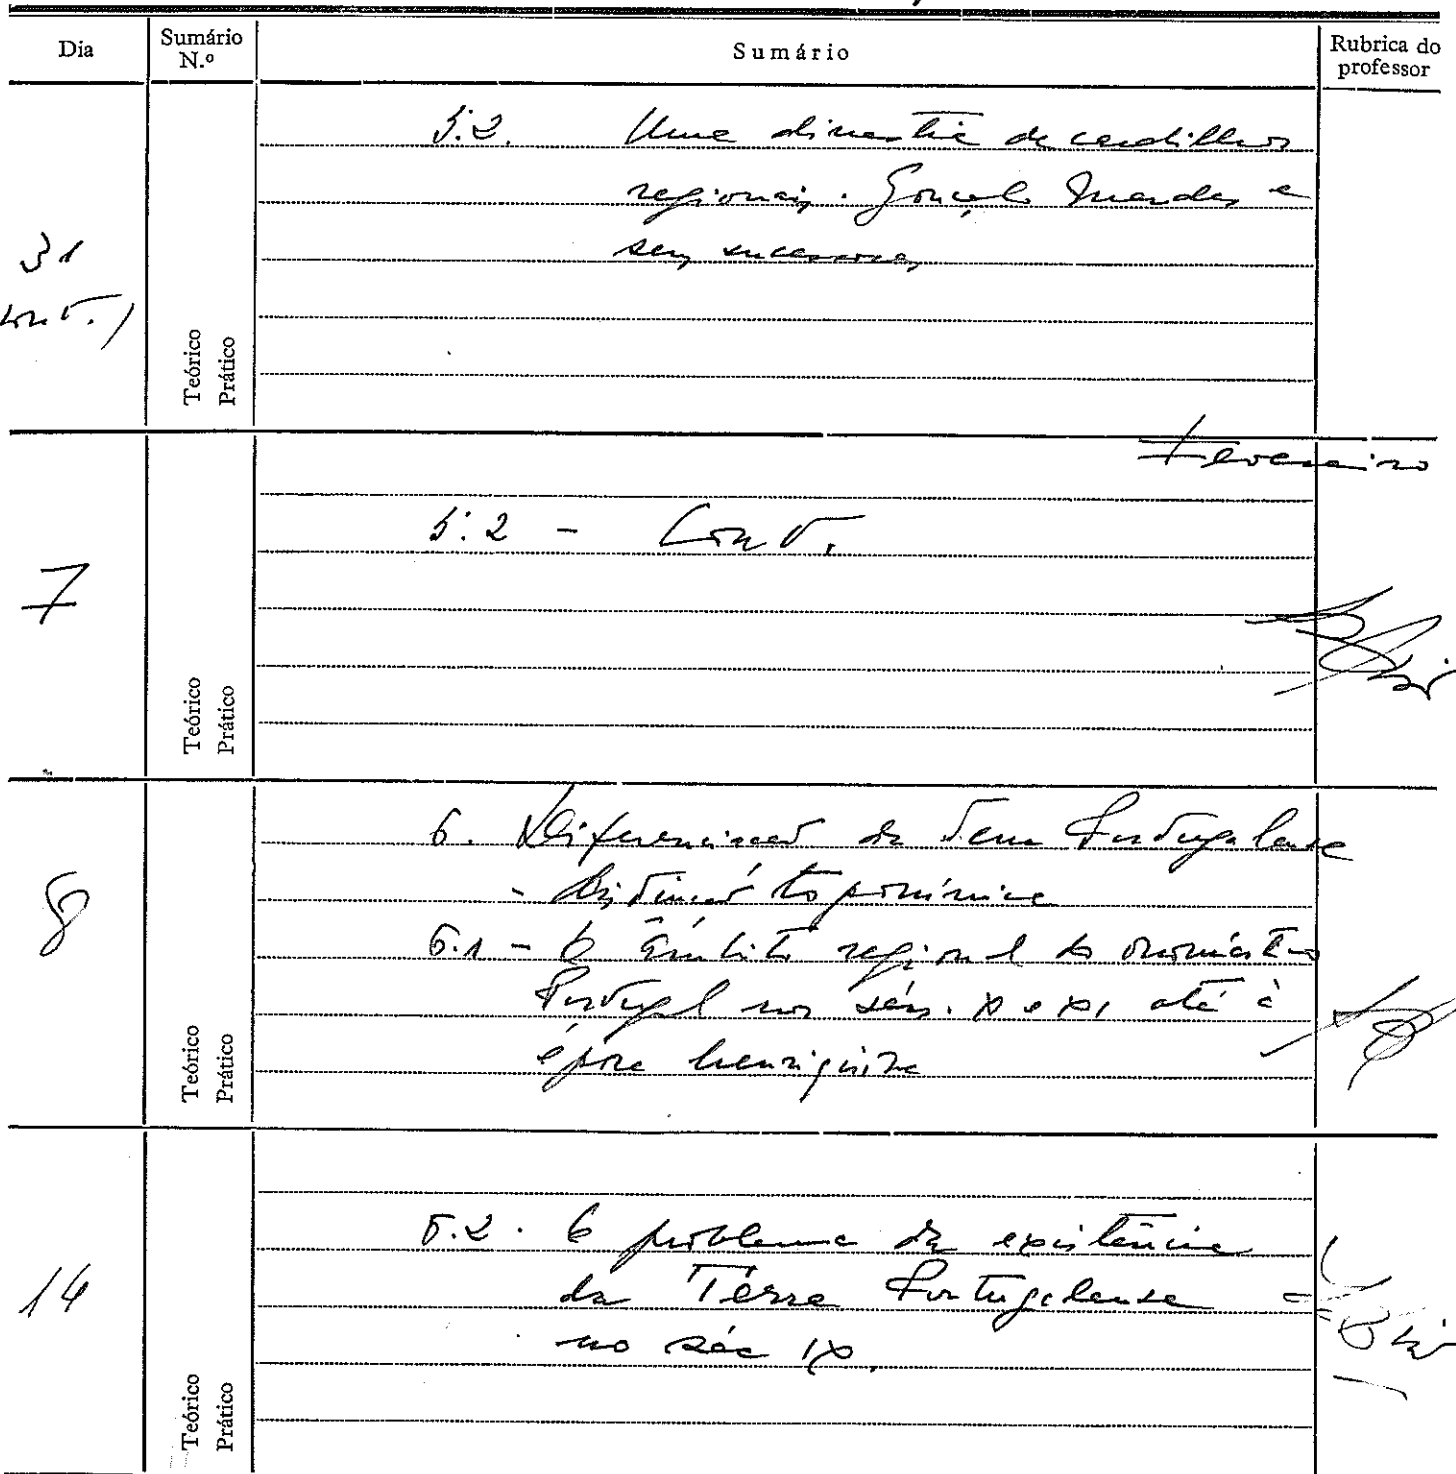 Dia
Sumário N.º
Sumário
Rubrica do professor
31
cont.)
Teórico
Prático
5.2. Uma dinastia de caudilhos
regionais. Gonçalo Mendes e
seus sucessores
Fevereiro
7
Teórico
Prático
5.2 - Cont.
8
Teórico
Prático
6. Diferenciação da Terra Portugalense
- Distinção toponímica
6.1 - O âmbito regional do onomástico
Portugal nos sécs. X e XI até à
época henriquina
14
Teórico
Prático
6.2. O problema da existência
da Terra Portugalense
no séc IX.